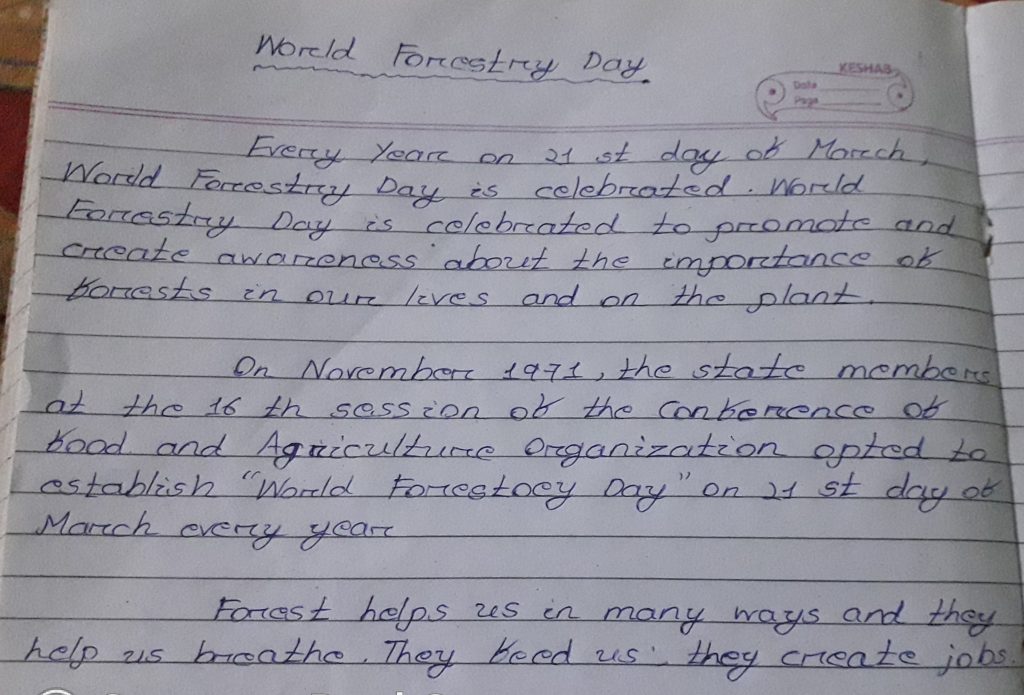 World Forestry Day
KESHAB
Date
Page
Every Year on 21 st day of March,
World Forestry Day is celebrated. World
Forestry Day is celebrated to promote and
create awareness about the importance of
forests in our lives and on the plant.
On November 1971, the state members
at the 16 th session of the Conference of
food and Agriculture Organization opted to
establish "World Forestoey Day" on 21 st day of
March every year
Forest helps us in many ways and they
help us breathe. They feed us, they create jobs.